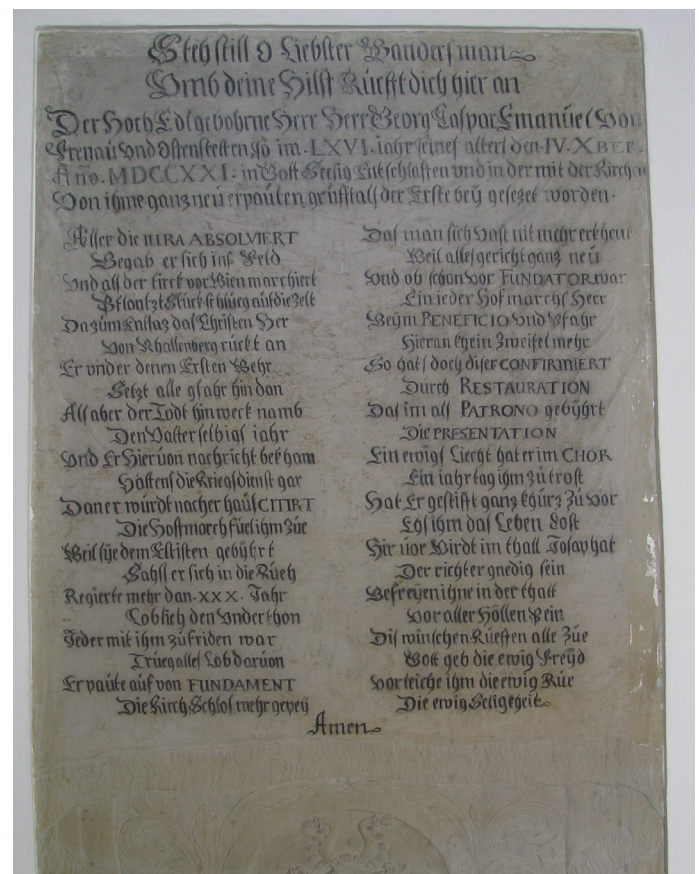 Steh still O Liebster Wanders man
Vmb deine Hilff Rüefft dich hier an
Der Hoch Edlgebohrne Herr Herr Georg Caspar Emanüel Von
Frenaü Vnd Ostenstetten so im .LXVI. iahr seines alters den .IV. XBER
Año. MDCCXXI. in Gott Seelig Entschlaffen und in der mit der Kirchen
Von ihme ganz neu erpauten grufft als der Erste beÿ gesezet worden.
Alser die IURA ABSOLVIERT
Begab er sich ins Veld
Vnd als der Tirck vor Wien marchiert
Pflantzt Stuck schlueg auf die Zelt
Da zum Entsaz das Christen Her
Von Khallenberg rückt an
Er vnder denen Ersten Wehr
Setzt alle gfahr hindan
Als aber der Todt hinweck namb
Den Vatter selbigs iahr
Vnd Er Hieruon nachricht bekham
Hassens die Kriegsdienst gar
Dan er würdt nacher haüs CITIRT
Die Hoffmarch füel ihm züe
Weil sÿe dem Eltisten gebührt
Sahst er sich in die Rueh
Regierte mehr dan .XXX. Jahr
Loblich den Vnderthon
Jeder mit ihm zufriden war
Trueg alles Lob daruon
Er paute auf von FUNDAMENT
Die Kirch, Schlos mehr
Das man sich Vast nit mehr erkhent
Weil alles gericht ganz neü
Vnd ob schon vor FUNDATOR war
Ein ieder Hofmarchs Herr
Beÿm BENEFICIO Vnd Pfahr
Hieran khein Zweifel mehr
So hats doch diser CONFIRMIERT
Durch RESTAURATION
Das im als PATRONO gebührt
Die PRESENTATION
Ein ewigs Liecht hat er im CHOR
Ein iahrtag ihm zu trost
Hat Er gestifft ganz khürz zü vor
Ehs ihm das Leben kost
Hir uor Wirdt im thall Josaphat
Der richter gnedig sein
Befreÿen ihne in der thatt
Vor aller Höllen Pein
Dis winschen Rüefften alle Züe
Gott geb die ewig Freÿd
Vorleiche ihm die ewig Rüe
Die ewig Seligkheit
Amen